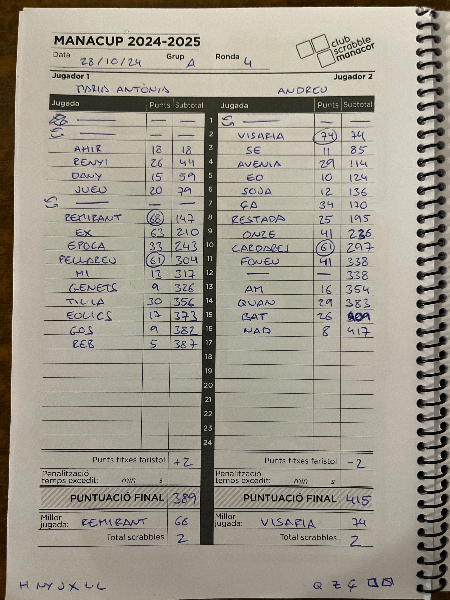 MANACUP 2024-2025
club scrabble manacor
Data 28/10/24 Grup A Ronda 4
Jugador 1 Jugador 2
MARIA ANTÒNIA ANDREU
Jugada Punts Subtotal Jugada Punts Subtotal
— — — 1 — — —
— — — 2 VISARIA 74 74
AMIR 18 18 3 SE 11 85
RENYI 26 44 4 AVENIA 29 114
DANY 15 59 5 EO 10 124
JUEU 20 79 6 SOJA 12 136
— — — 7 GA 34 170
REMIRANT 68 147 8 RESTADA 25 195
EX 63 210 9 ONZE 41 236
EPOCA 33 243 10 CARDARES 61 297
PELLAREU 61 304 11 FONEU 41 338
MI 13 317 12 — — 338
GENETS 9 326 13 AM 16 354
TIL·LA 30 356 14 QUAN 29 383
EOLICS 17 373 15 BAT 26 409
GOS 9 382 16 NAP 8 417
REB 5 387 17
18
19
20
21
22
23
24
Punts fitxes faristol +2 Punts fitxes faristol -2
Penalització temps excedit: min s Penalització temps excedit: min s
PUNTUACIÓ FINAL 389 PUNTUACIÓ FINAL 415
Millor jugada: REMIRANT 68 Millor jugada: VISARIA 74
Total scrabbles 2 Total scrabbles 2
Q Z Ç